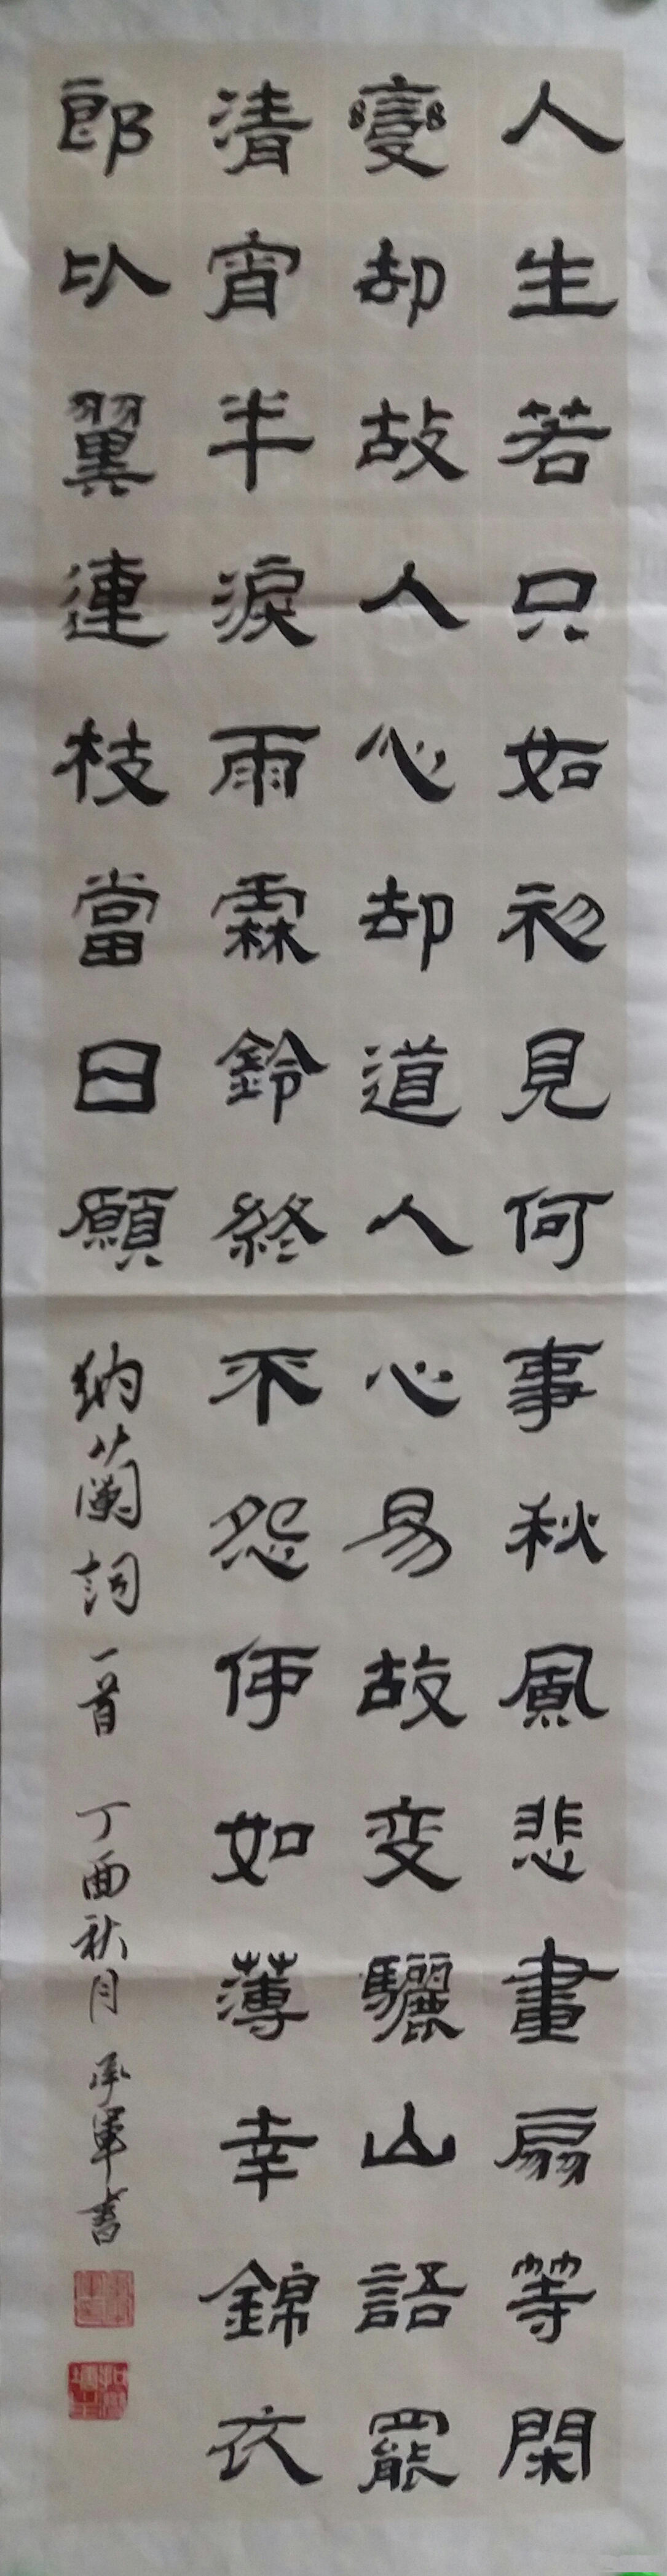 人生若只如初見何事秋風悲畫扇等閑
變却故人心却道人心易故变驪山語罷
清宵半淚雨霖鈴終不怨伊如薄幸錦衣
郎以翼連枝當日願
納蘭詞一首 丁酉秋月 承軍書